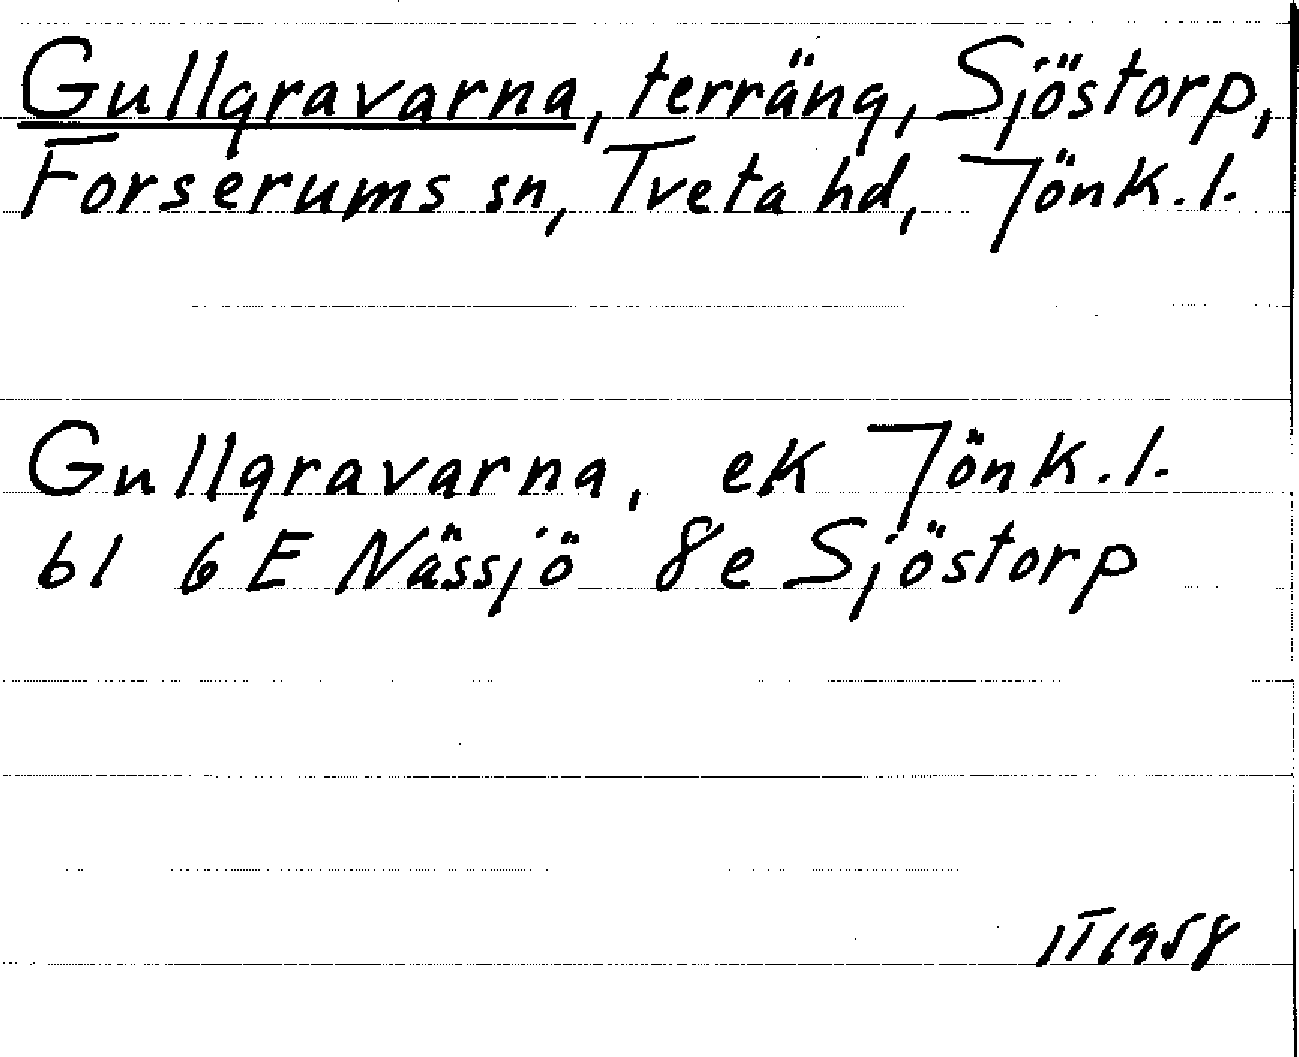 Gullgravarna, terräng, Sjöstorp,
Forserums sn, Tveta hd, Jönk.l.
Gullgravarna, ek Jönk.l.
bl 6 E Nässjö 8e Sjöstorp
1T1958